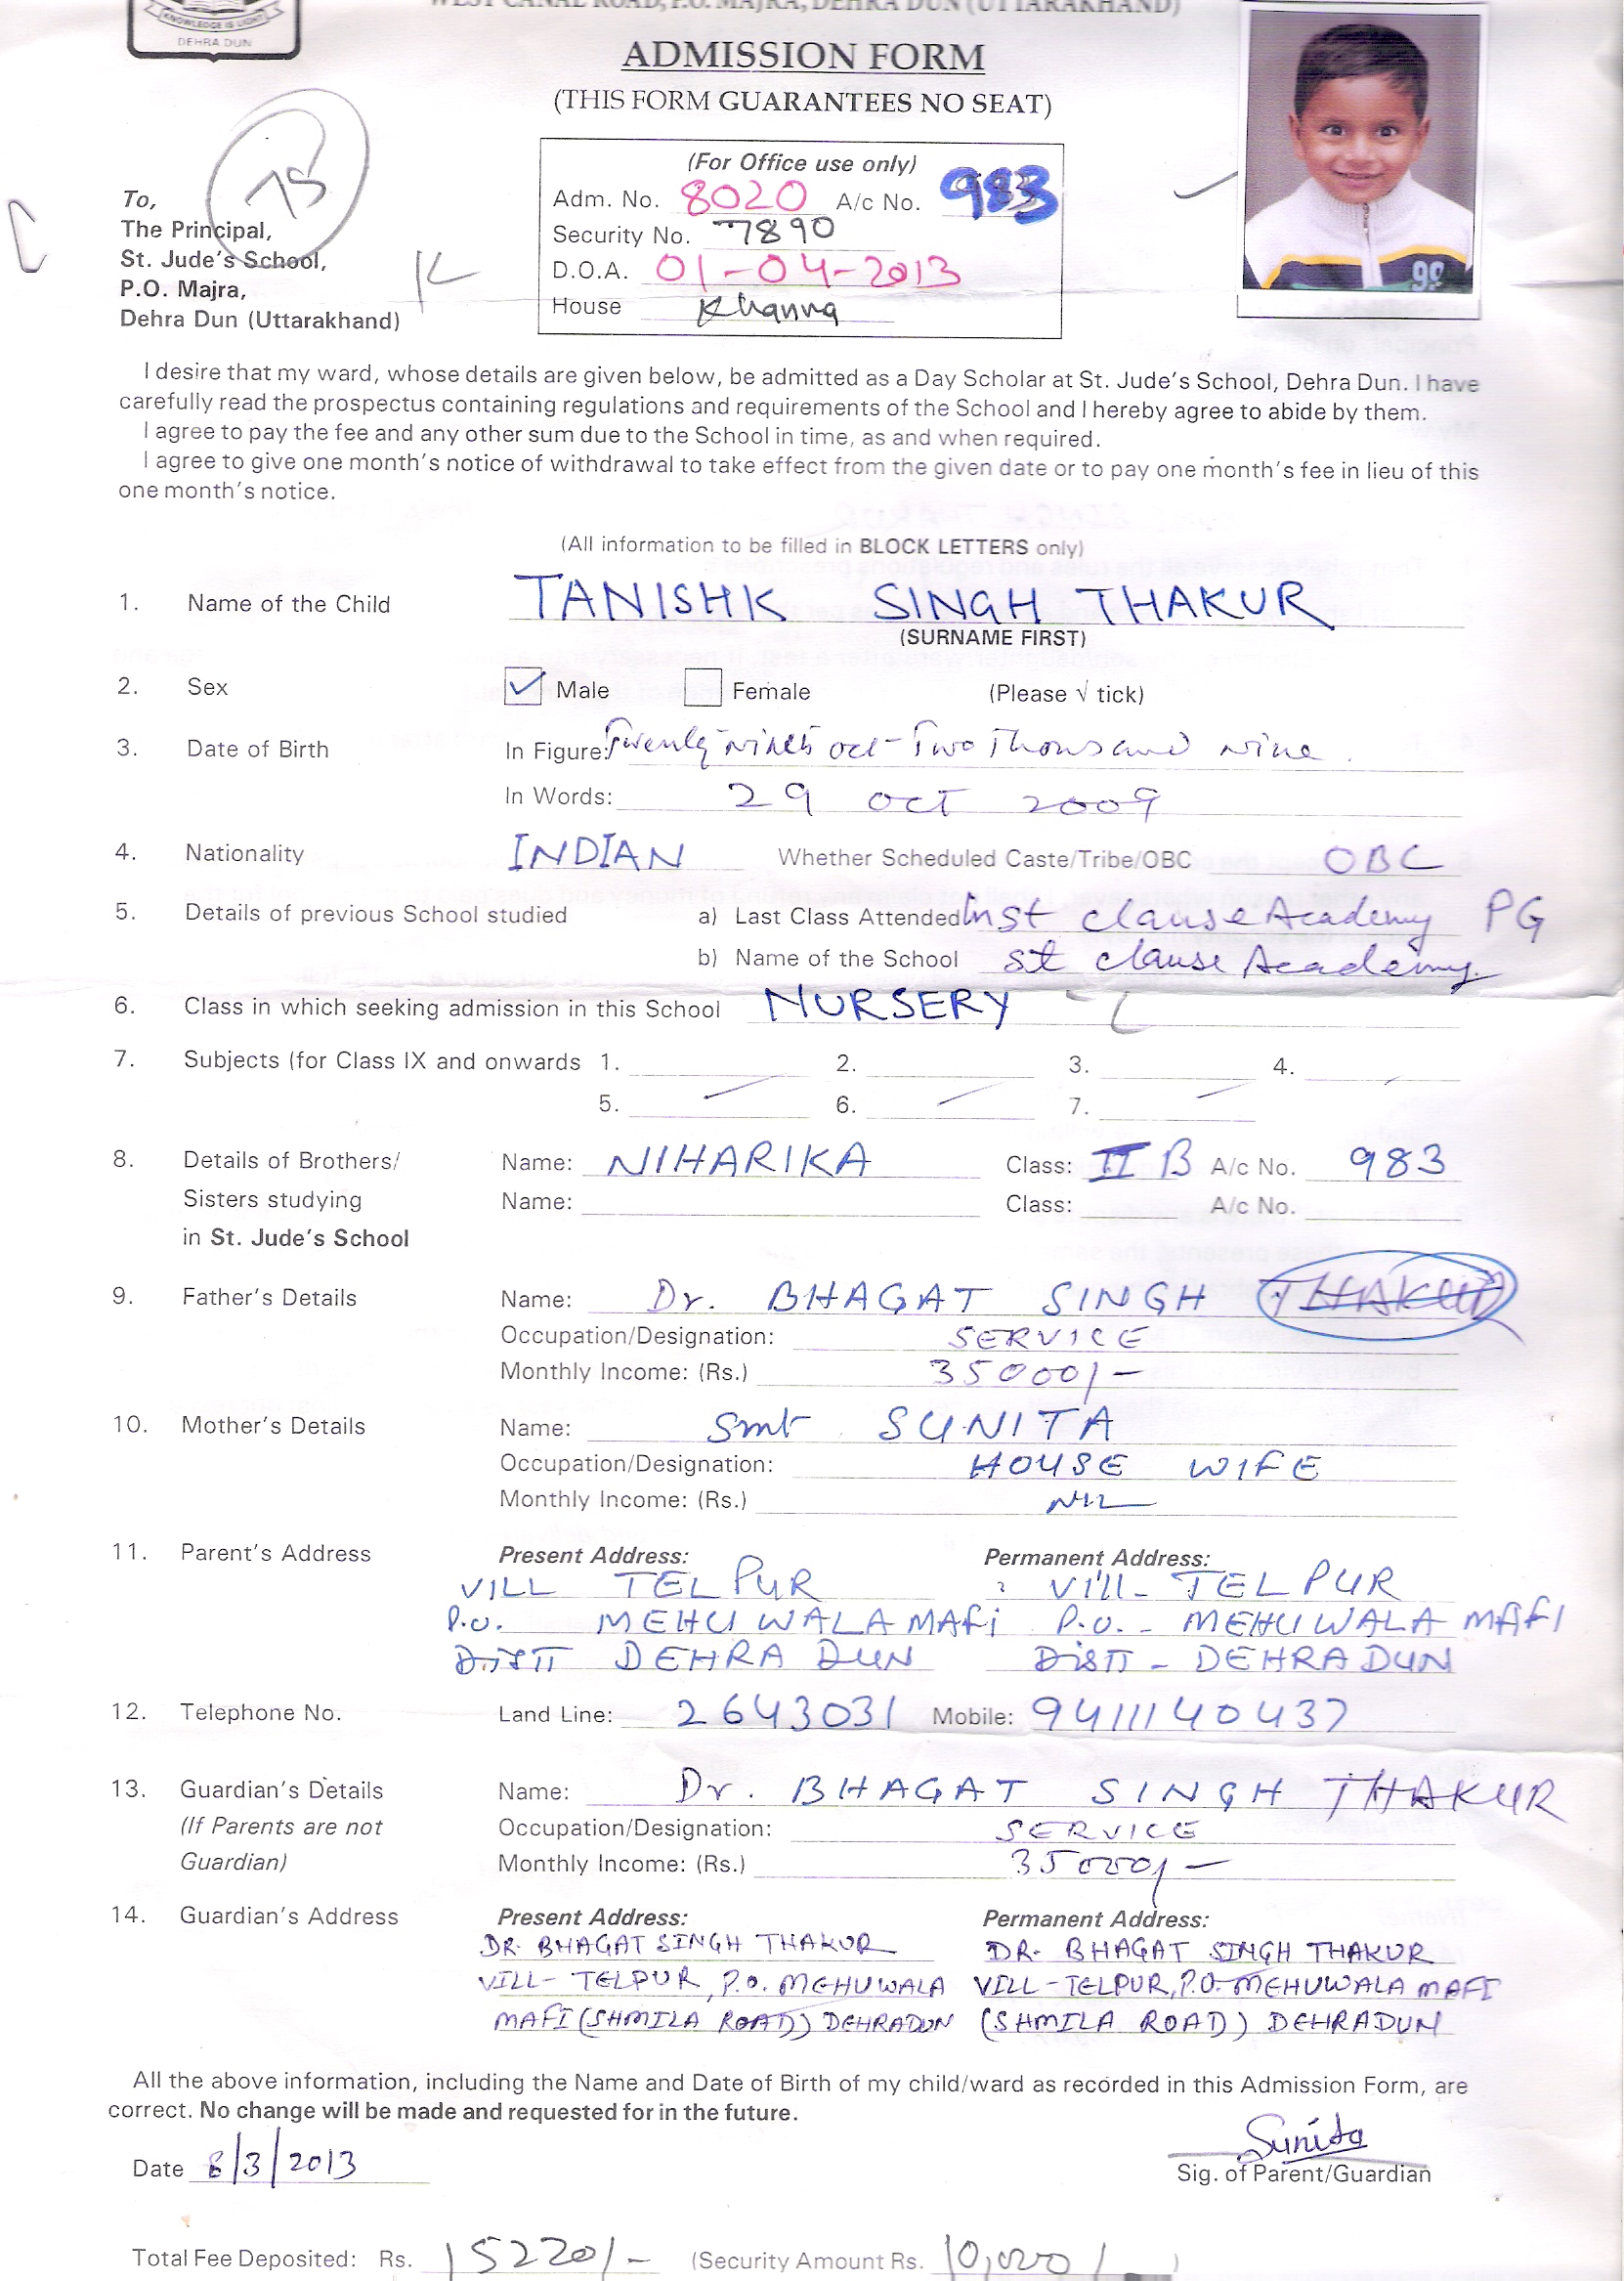 WEST CANAL ROAD, P.O. MAJRA, DEHRA DUN (UTTARAKHAND)
KNOWLEDGE IS LIGHT
DEHRA DUN
ADMISSION FORM
(THIS FORM GUARANTEES NO SEAT)
(For Office use only)
Adm. No. 8020 A/c No. 983
Security No. 7890
D.O.A. 01-04-2013
House Khanna
To,
The Principal,
St. Jude's School,
P.O. Majra,
Dehra Dun (Uttarakhand)
99
I desire that my ward, whose details are given below, be admitted as a Day Scholar at St. Jude's School, Dehra Dun. I have
carefully read the prospectus containing regulations and requirements of the School and I hereby agree to abide by them.
I agree to pay the fee and any other sum due to the School in time, as and when required.
I agree to give one month's notice of withdrawal to take effect from the given date or to pay one month's fee in lieu of this
one month's notice.
(All information to be filled in BLOCK LETTERS only)
1. Name of the Child TANISHK SINGH THAKUR
(SURNAME FIRST)
2. Sex Male Female (Please √ tick)
3. Date of Birth In Figure: Twenty Nineth oct - Two Thousand nine.
In Words: 29 OCT 2009
4. Nationality INDIAN Whether Scheduled Caste/Tribe/OBC OBC
5. Details of previous School studied a) Last Class Attended st clause Academy PG
b) Name of the School st clause Academy
6. Class in which seeking admission in this School NURSERY
7. Subjects (for Class IX and onwards 1. 2. 3. 4.
5. 6. 7.
8. Details of Brothers/ Name: NIHARIKA Class: II B A/c No. 983
Sisters studying Name: Class: A/c No.
in St. Jude's School
9. Father's Details Name: Dr. BHAGAT SINGH THAKUR
Occupation/Designation: SERVICE
Monthly Income: (Rs.) 35000/-
10. Mother's Details Name: Smt SUNITA
Occupation/Designation: HOUSE WIFE
Monthly Income: (Rs.) NIL
11. Parent's Address Present Address: Permanent Address:
VILL TELPUR Vill- TELPUR
P.O. MEHUWALA MAFi P.O. - MEHUWALA MAFI
DISTT DEHRA DUN DISTT - DEHRADUN
12. Telephone No. Land Line: 2643031 Mobile: 9411140437
13. Guardian's Details Name: Dr. BHAGAT SINGH THAKUR
(If Parents are not Occupation/Designation: SERVICE
Guardian) Monthly Income: (Rs.) 35000/-
14. Guardian's Address Present Address: Permanent Address:
DR. BHAGAT SINGH THAKUR DR. BHAGAT SINGH THAKUR
VILL- TELPUR, P.O. MEHUWALA VILL-TELPUR, P.O. MEHUWALA MAFI
MAFI (SHMILA ROAD) DEHRADUN (SHMILA ROAD) DEHRADUN
All the above information, including the Name and Date of Birth of my child/ward as recorded in this Admission Form, are
correct. No change will be made and requested for in the future.
Sunita
Date 8/3/2013 Sig. of Parent/Guardian
Total Fee Deposited: Rs. 15220/- (Security Amount Rs. 10,000/ )